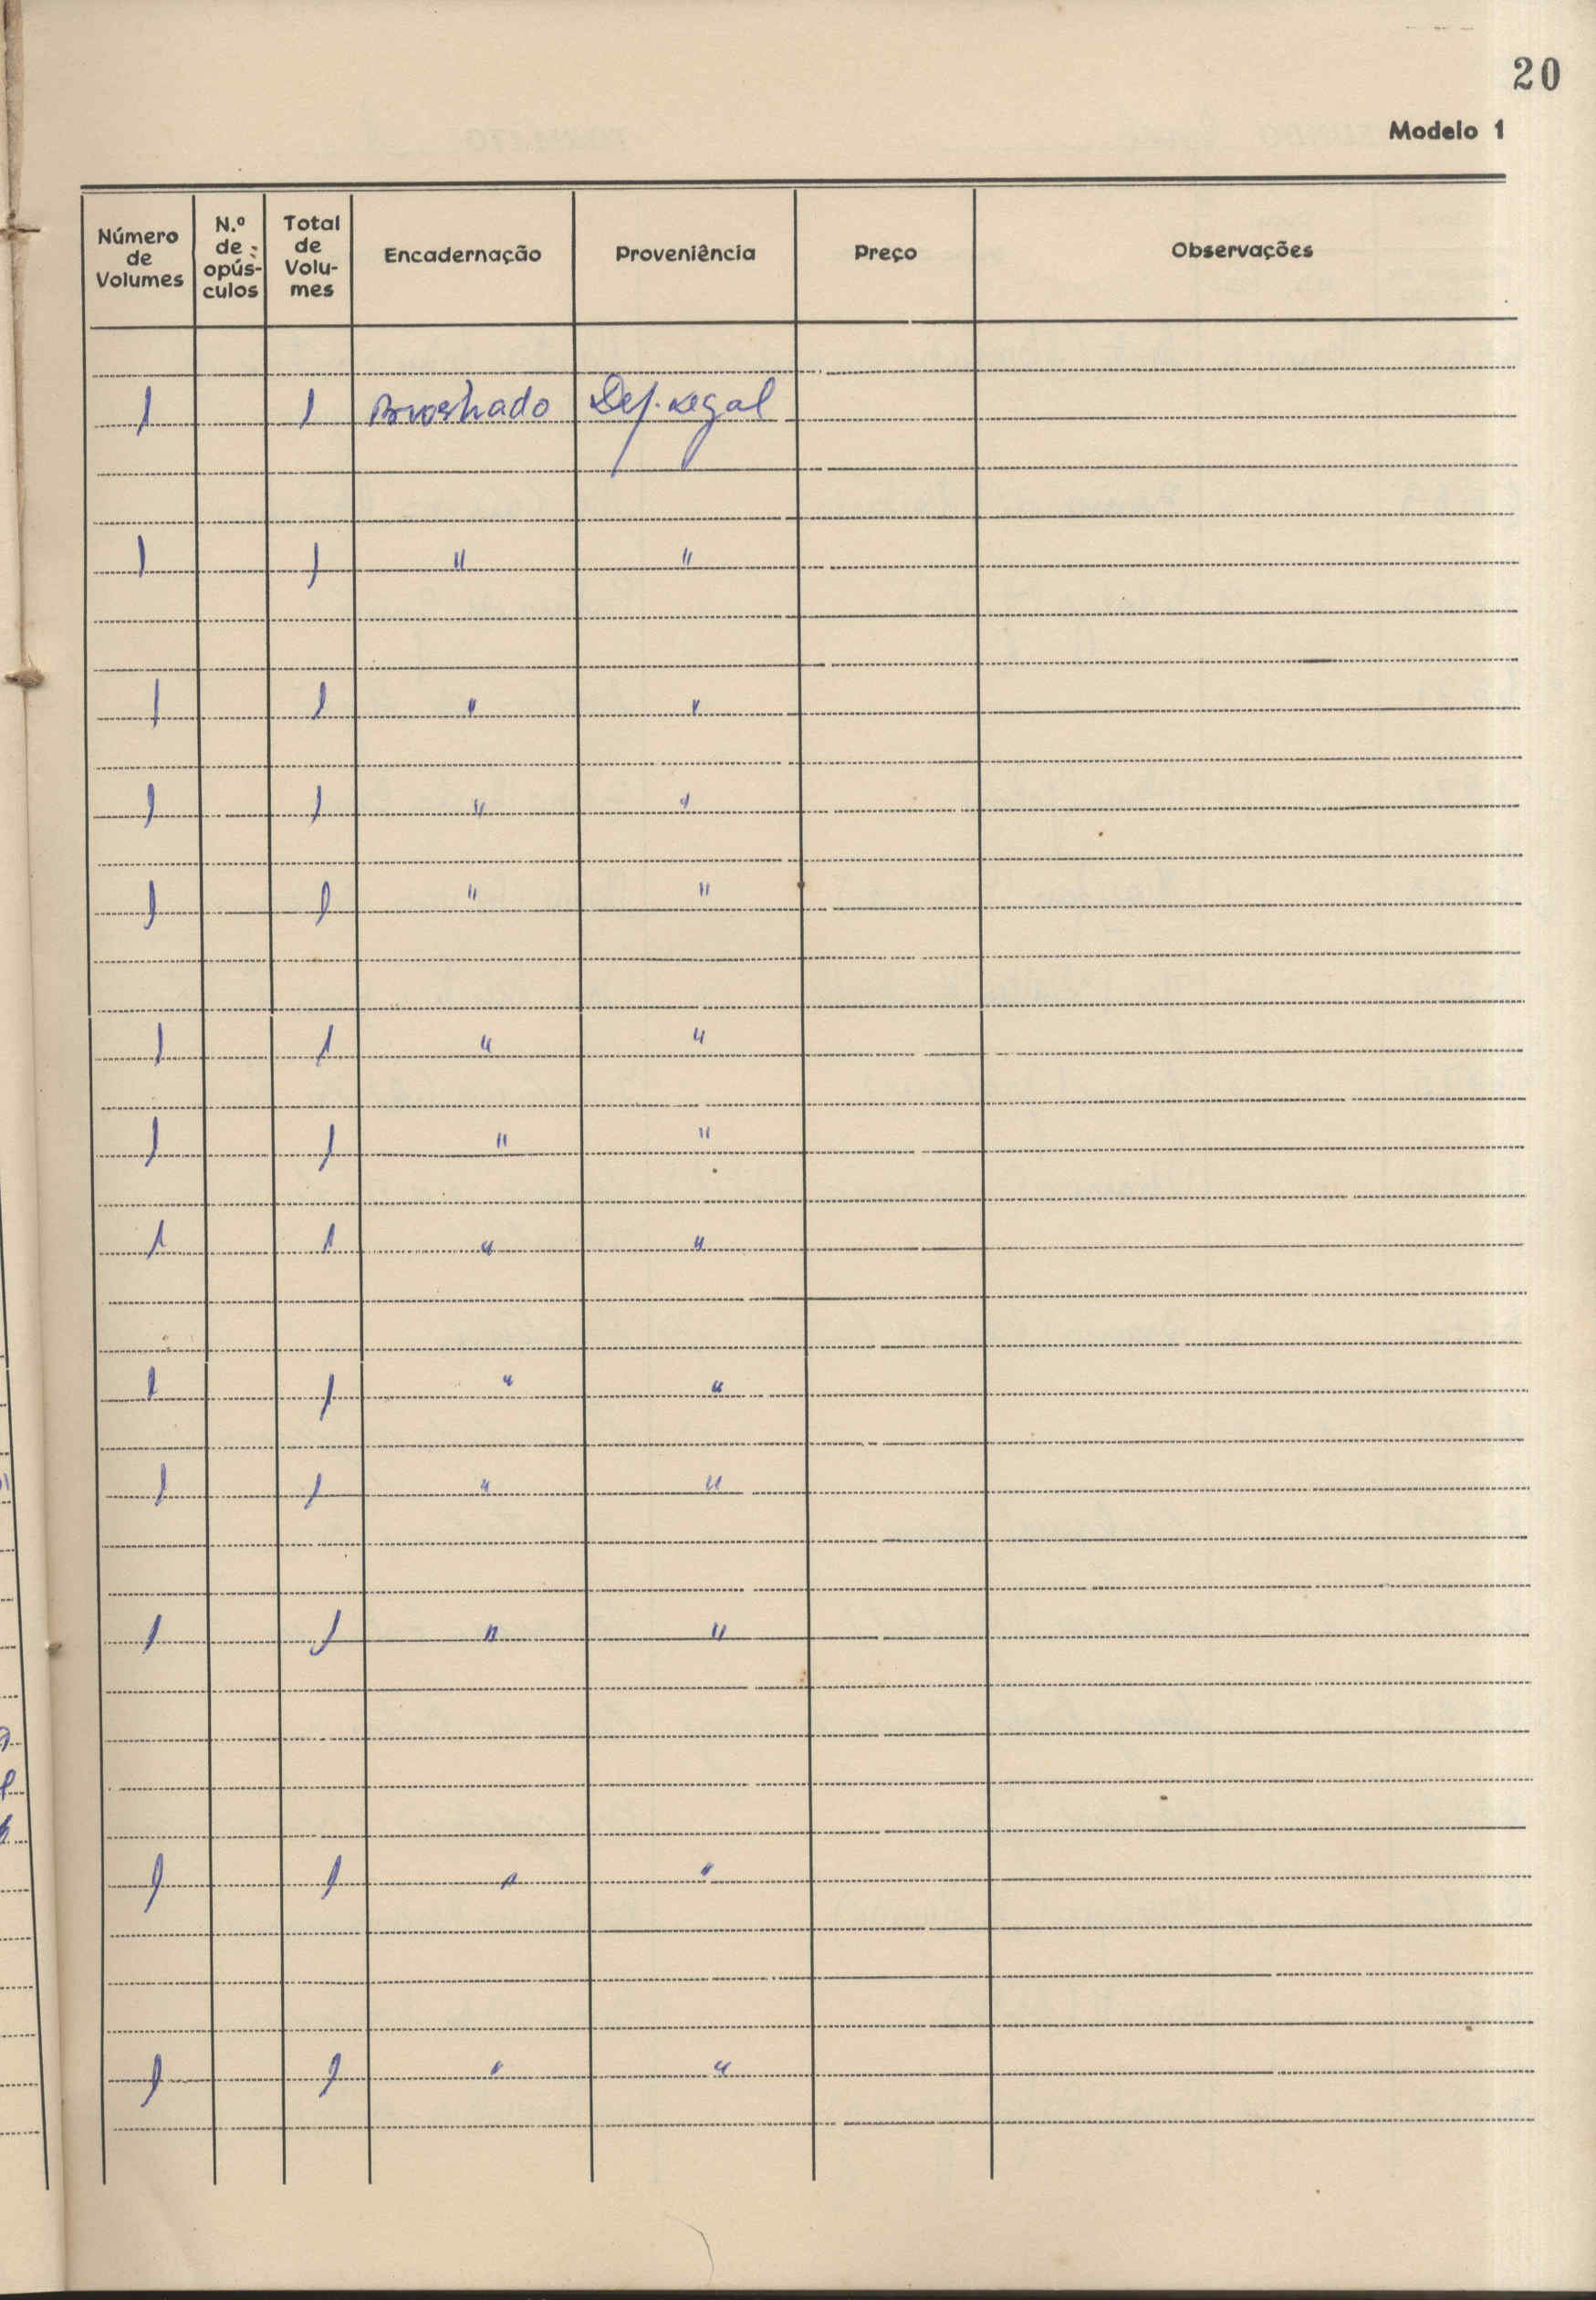 20
Modelo 1
Número de Volumes N.º de opús-culos Total de Volu-mes Encadernação Proveniência Preço Observações
1 1 Broshado Dep. Legal
1 1 " "
1 1 " "
1 1 " "
1 1 " "
1 1 " "
1 1 " "
1 1 " "
1 1 " "
1 1 " "
1 1 " "
1 1 " "
1 1 " "